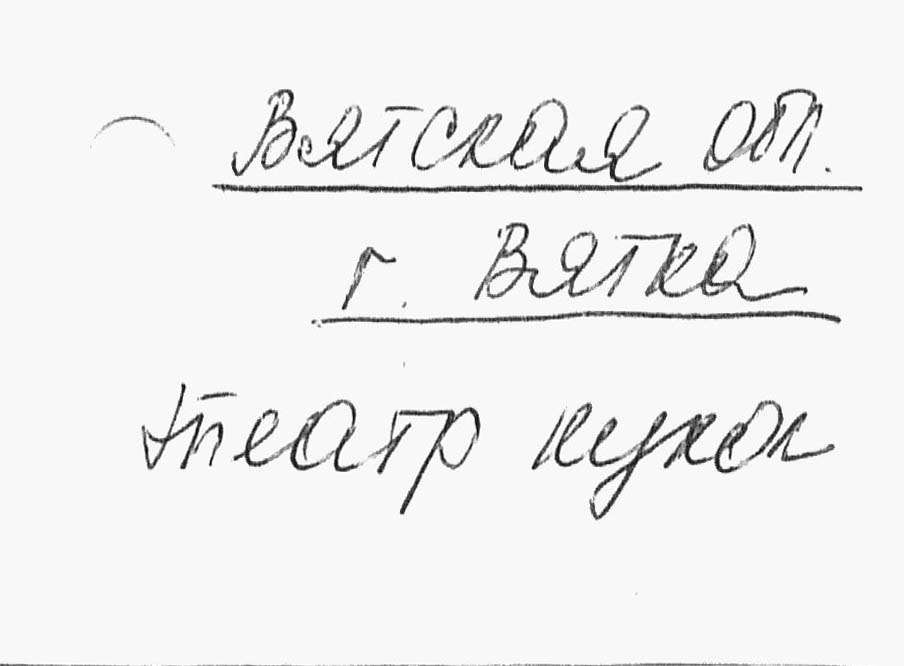 Вятская обл.
г. Вятка
театр кукол